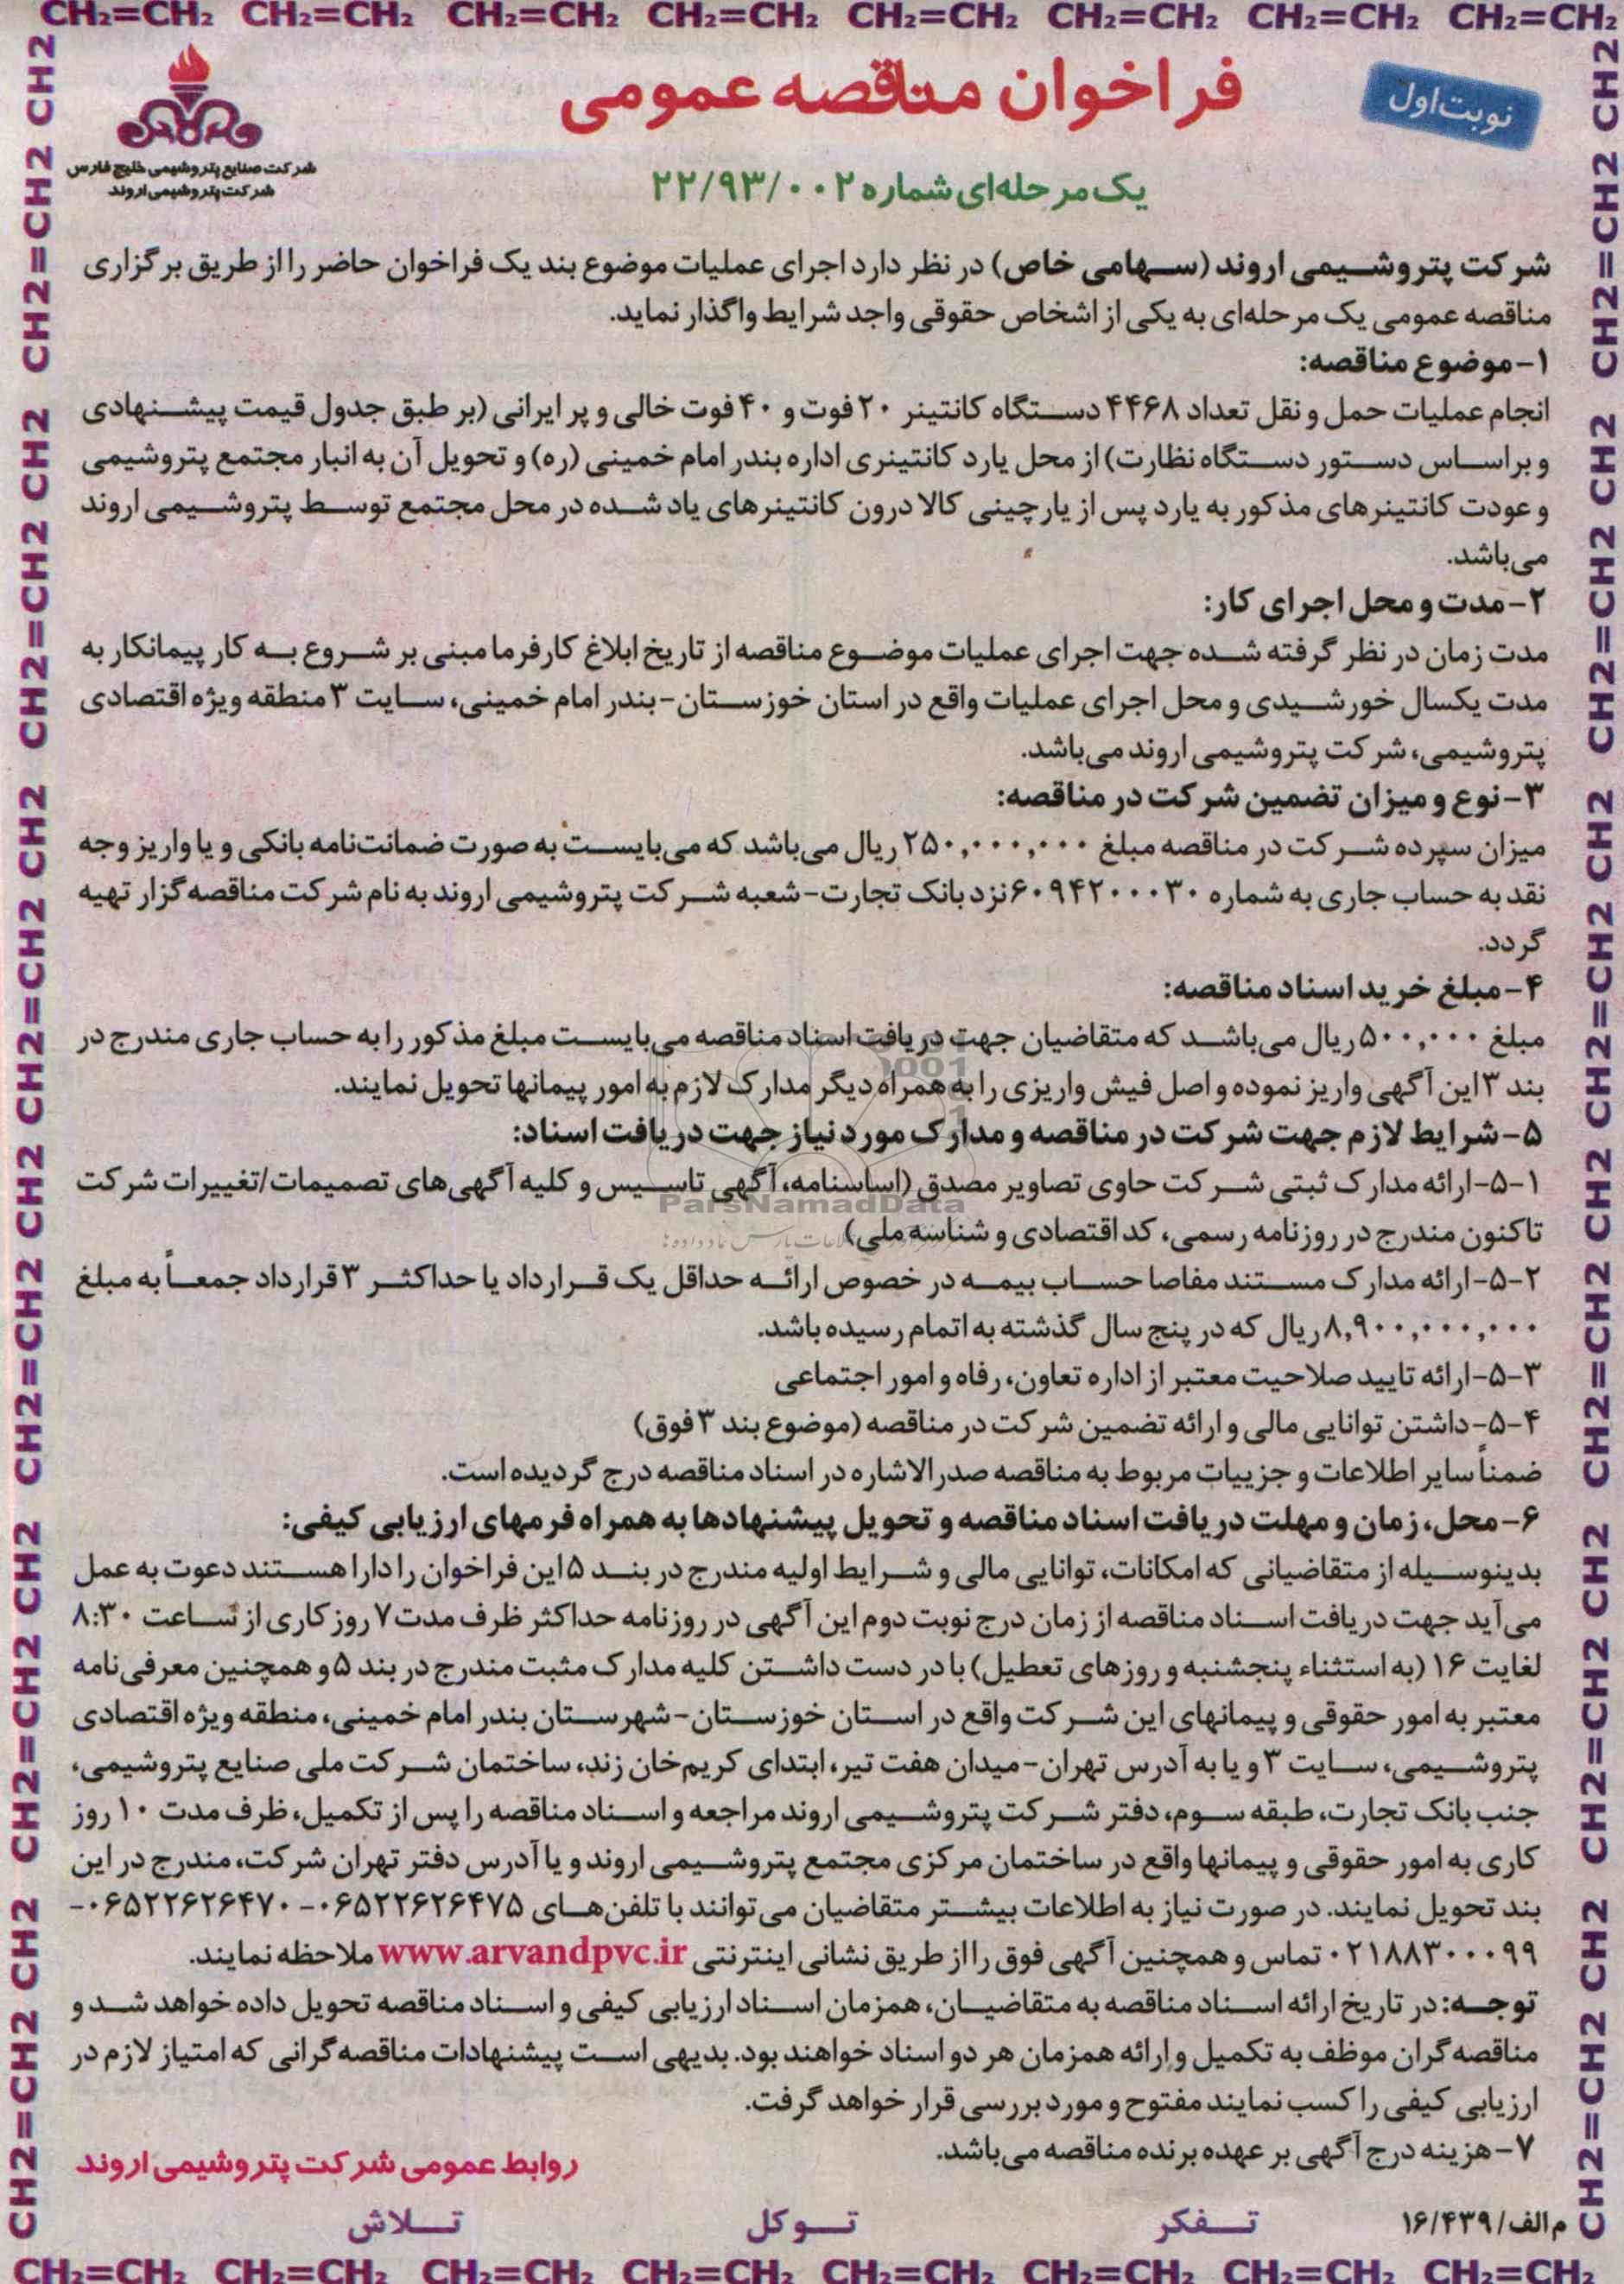 CH₂=CH₂ CH₂=CH₂ CH₂=CH₂ CH₂=CH₂ CH₂=CH₂ CH₂=CH₂ CH₂=CH₂ CH₂=CH₂
نوبت اول
فراخوان مناقصه عمومی
شرکت صنایع پتروشیمی خلیج فارس
شرکت پتروشیمی اروند
یک مرحله‌ای شماره ۲۲/۹۳/۰۰۲
شرکت پتروشیمی اروند (سهامی خاص) در نظر دارد اجرای عملیات موضوع بند یک فراخوان حاضر را از طریق برگزاری
مناقصه عمومی یک مرحله‌ای به یکی از اشخاص حقوقی واجد شرایط واگذار نماید.
۱-موضوع مناقصه:
انجام عملیات حمل و نقل تعداد ۴۴۶۸ دستگاه کانتینر ۲۰ فوت و ۴۰ فوت خالی و پر ایرانی (بر طبق جدول قیمت پیشنهادی
و براساس دستور دستگاه نظارت) از محل یارد کانتینری اداره بندر امام خمینی (ره) و تحویل آن به انبار مجتمع پتروشیمی
و عودت کانتینرهای مذکور به یارد پس از یارچینی کالا درون کانتینرهای یاد شده در محل مجتمع توسط پتروشیمی اروند
می‌باشد.
۲-مدت و محل اجرای کار:
مدت زمان در نظر گرفته شده جهت اجرای عملیات موضوع مناقصه از تاریخ ابلاغ کارفرما مبنی بر شروع به کار پیمانکار به
مدت یکسال خورشیدی و محل اجرای عملیات واقع در استان خوزستان-بندر امام خمینی، سایت ۳ منطقه ویژه اقتصادی
پتروشیمی، شرکت پتروشیمی اروند می‌باشد.
۳-نوع و میزان تضمین شرکت در مناقصه:
میزان سپرده شرکت در مناقصه مبلغ ۲۵۰,۰۰۰,۰۰۰ ریال می‌باشد که می‌بایست به صورت ضمانت‌نامه بانکی و یا واریز وجه
نقد به حساب جاری به شماره ۶۰۹۴۲۰۰۰۳۰ نزد بانک تجارت-شعبه شرکت پتروشیمی اروند به نام شرکت مناقصه‌گزار تهیه
گردد.
۴-مبلغ خرید اسناد مناقصه:
مبلغ ۵۰۰,۰۰۰ ریال می‌باشد که متقاضیان جهت دریافت اسناد مناقصه می‌بایست مبلغ مذکور را به حساب جاری مندرج در
بند ۳ این آگهی واریز نموده و اصل فیش واریزی را به همراه دیگر مدارک لازم به امور پیمانها تحویل نمایند.
۵-شرایط لازم جهت شرکت در مناقصه و مدارک مورد نیاز جهت دریافت اسناد:
۵-۱-ارائه مدارک ثبتی شرکت حاوی تصاویر مصدق (اساسنامه، آگهی تاسیس و کلیه آگهی‌های تصمیمات/تغییرات شرکت
ParsNamadData
تاکنون مندرج در روزنامه رسمی، کد اقتصادی و شناسه ملی)
۵-۲-ارائه مدارک مستند مفاصا حساب بیمه در خصوص ارائه حداقل یک قرارداد یا حداکثر ۳ قرارداد جمعاً به مبلغ
۸,۹۰۰,۰۰۰,۰۰۰ ریال که در پنج سال گذشته به اتمام رسیده باشد.
۵-۳-ارائه تایید صلاحیت معتبر از اداره تعاون، رفاه و امور اجتماعی
۵-۴-داشتن توانایی مالی و ارائه تضمین شرکت در مناقصه (موضوع بند ۳ فوق)
ضمناً سایر اطلاعات و جزییات مربوط به مناقصه صدرالاشاره در اسناد مناقصه درج گردیده است.
۶-محل، زمان و مهلت دریافت اسناد مناقصه و تحویل پیشنهادها به همراه فرمهای ارزیابی کیفی:
بدینوسیله از متقاضیانی که امکانات، توانایی مالی و شرایط اولیه مندرج در بند ۵ این فراخوان را دارا هستند دعوت به عمل
می‌آید جهت دریافت اسناد مناقصه از زمان درج نوبت دوم این آگهی در روزنامه حداکثر ظرف مدت ۷ روز کاری از ساعت ۸:۳۰
لغایت ۱۶ (به استثناء پنجشنبه و روزهای تعطیل) با در دست داشتن کلیه مدارک مثبت مندرج در بند ۵ و همچنین معرفی‌نامه
معتبر به امور حقوقی و پیمانهای این شرکت واقع در استان خوزستان-شهرستان بندر امام خمینی، منطقه ویژه اقتصادی
پتروشیمی، سایت ۳ و یا به آدرس تهران-میدان هفت تیر، ابتدای کریم‌خان زند، ساختمان شرکت ملی صنایع پتروشیمی،
جنب بانک تجارت، طبقه سوم، دفتر شرکت پتروشیمی اروند مراجعه و اسناد مناقصه را پس از تکمیل، ظرف مدت ۱۰ روز
کاری به امور حقوقی و پیمانها واقع در ساختمان مرکزی مجتمع پتروشیمی اروند و یا آدرس دفتر تهران شرکت، مندرج در این
بند تحویل نمایند. در صورت نیاز به اطلاعات بیشتر متقاضیان می‌توانند با تلفن‌های ۰۶۵۲۲۶۲۶۴۷۵- ۰۶۵۲۲۶۲۶۴۷۰-
۰۲۱۸۸۳۰۰۰۹۹ تماس و همچنین آگهی فوق را از طریق نشانی اینترنتی www.arvandpvc.ir ملاحظه نمایند.
توجه: در تاریخ ارائه اسناد مناقصه به متقاضیان، همزمان اسناد ارزیابی کیفی و اسناد مناقصه تحویل داده خواهد شد و
مناقصه‌گران موظف به تکمیل و ارائه همزمان هر دو اسناد خواهند بود. بدیهی است پیشنهادات مناقصه‌گرانی که امتیاز لازم در
ارزیابی کیفی را کسب نمایند مفتوح و مورد بررسی قرار خواهد گرفت.
۷-هزینه درج آگهی بر عهده برنده مناقصه می‌باشد.
روابط عمومی شرکت پتروشیمی اروند
م الف/۱۶/۴۳۹
تفکر توکل تلاش
CH₂=CH₂ CH₂=CH₂ CH₂=CH₂ CH₂=CH₂ CH₂=CH₂ CH₂=CH₂ CH₂=CH₂ CH₂=CH₂